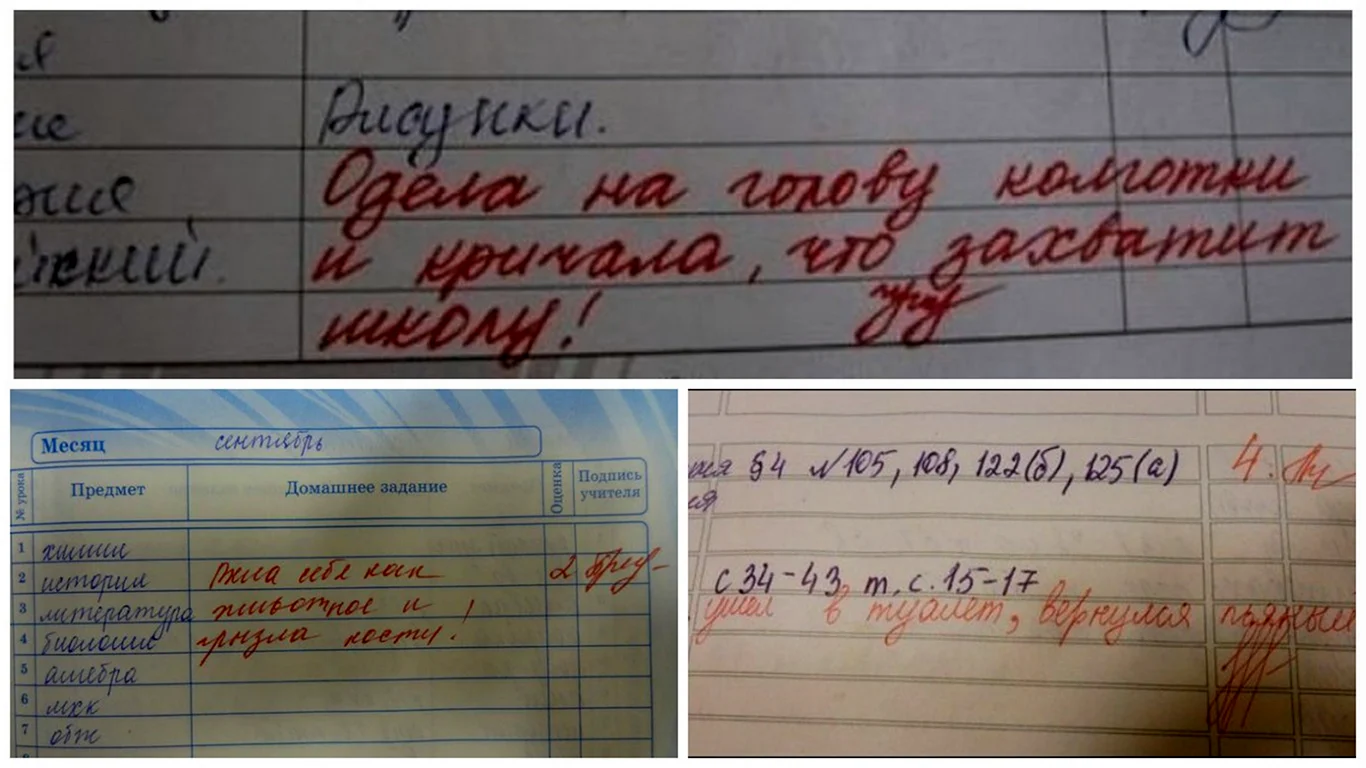 Рисунки.
Одела на голову колготки
и кричала, что захватит
школу!
Месяц сентябрь
№ урока Предмет Домашнее задание Оценка Подпись учителя
1 химия
2 история Вела себя как 2
3 литература животное и
4 биология грызла кости!
5 алгебра
6 мхк
7 обж
§4 №105, 108, 122(б), 125(а) 4
с.34-43, т. с.15-17
ушёл в туалет, вернулся пьяный